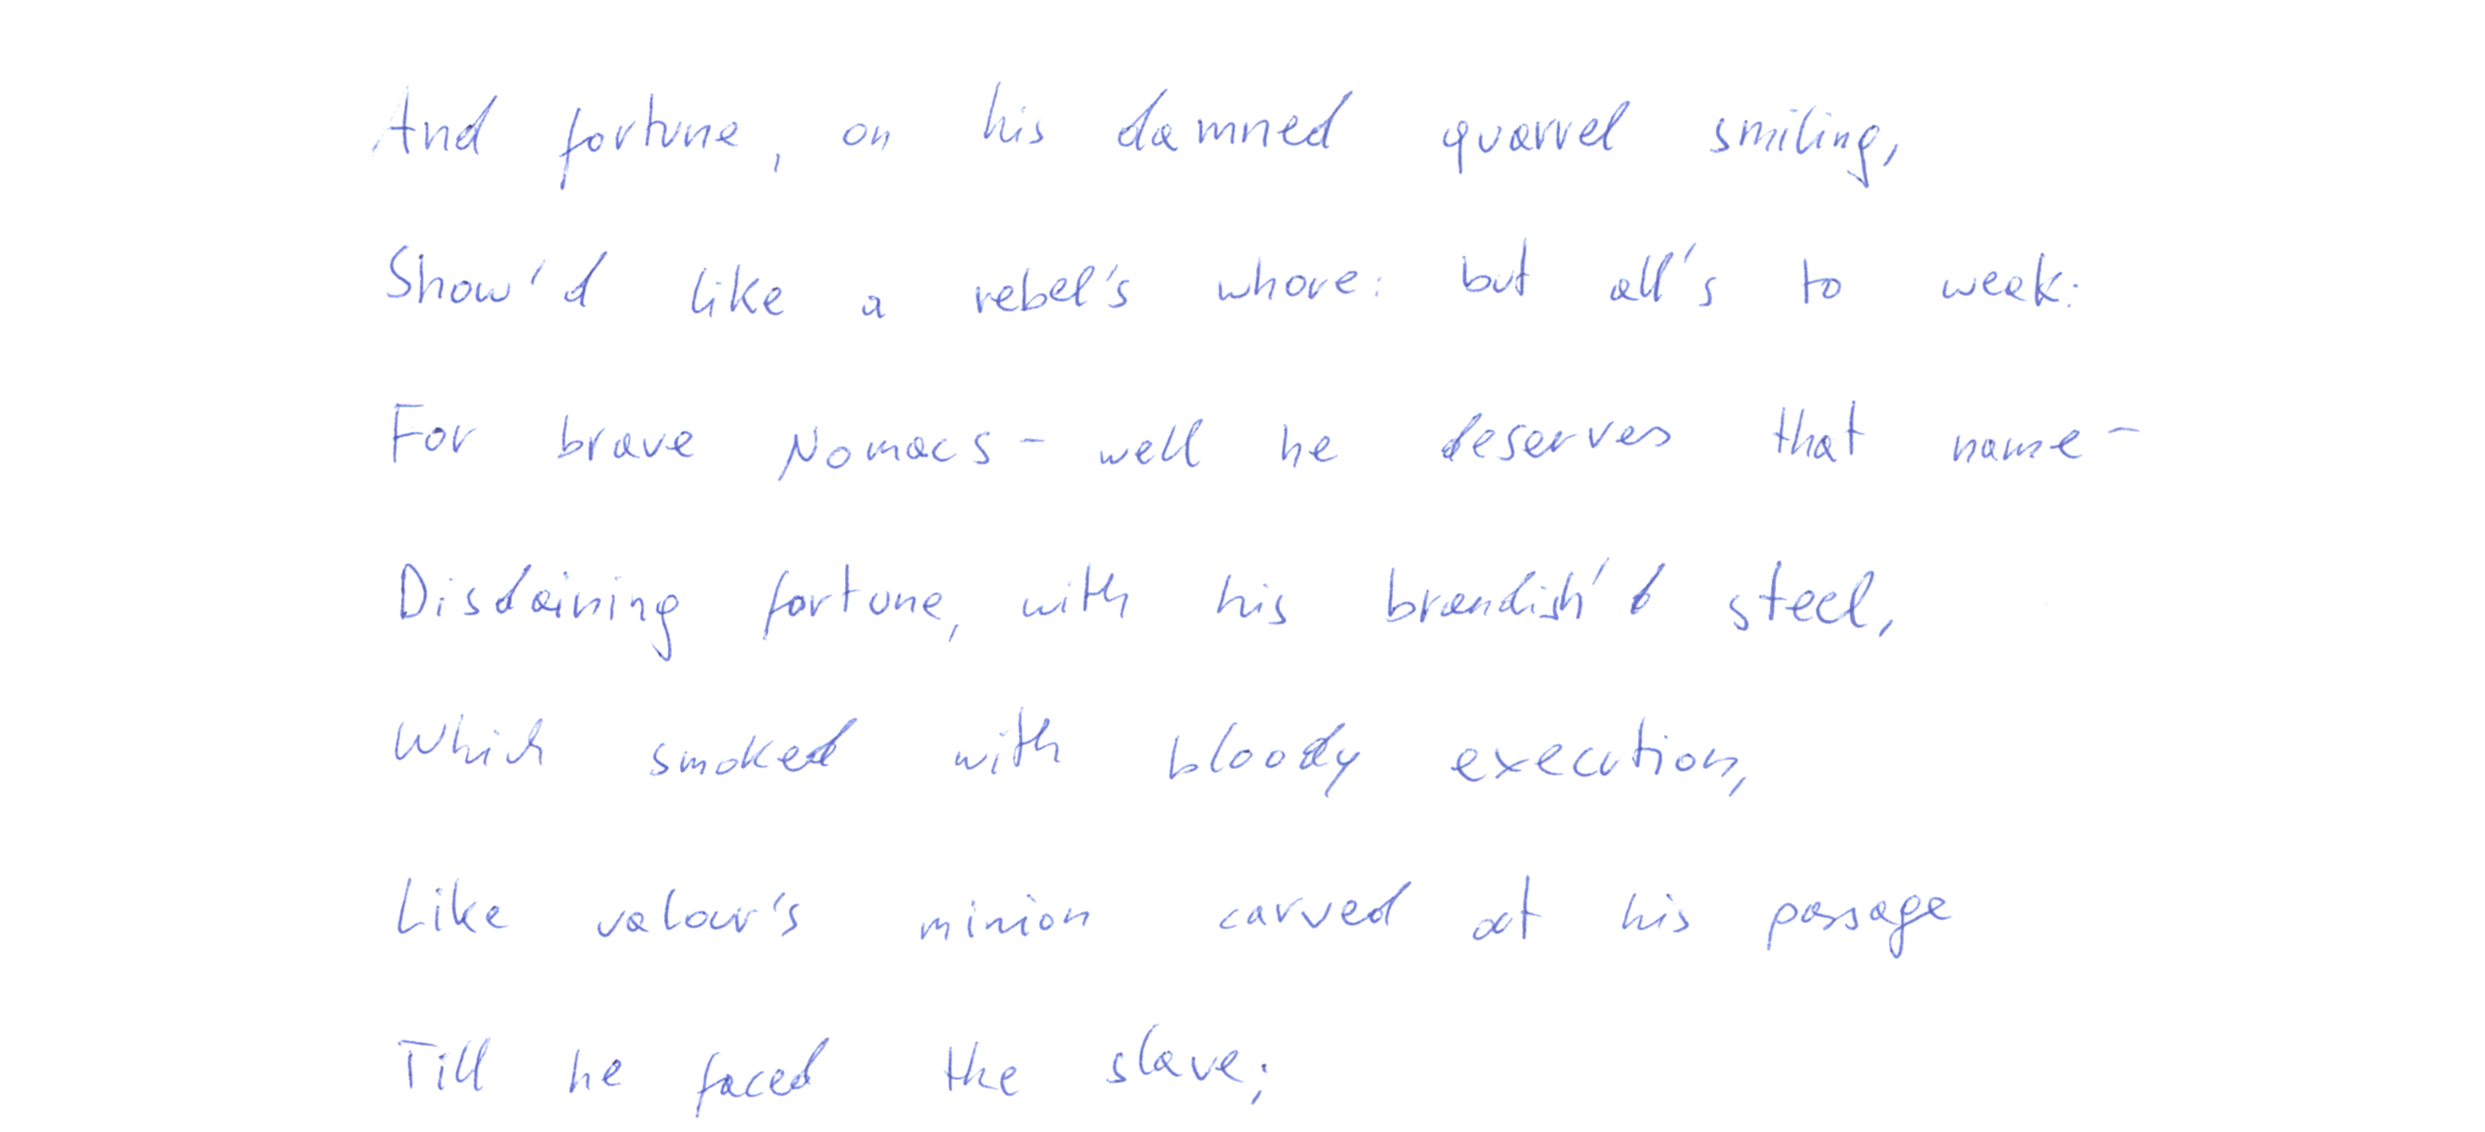 And fortune, on his damned quarrel smiling,
Show'd like a rebel's whore: but all's to weak:
For brave Nomacs - well he deserves that name -
Disdaining fortune, with his brandish'd steel,
Which smoked with bloody execution,
Like valour's minion carved at his passage
Till he faced the slave;